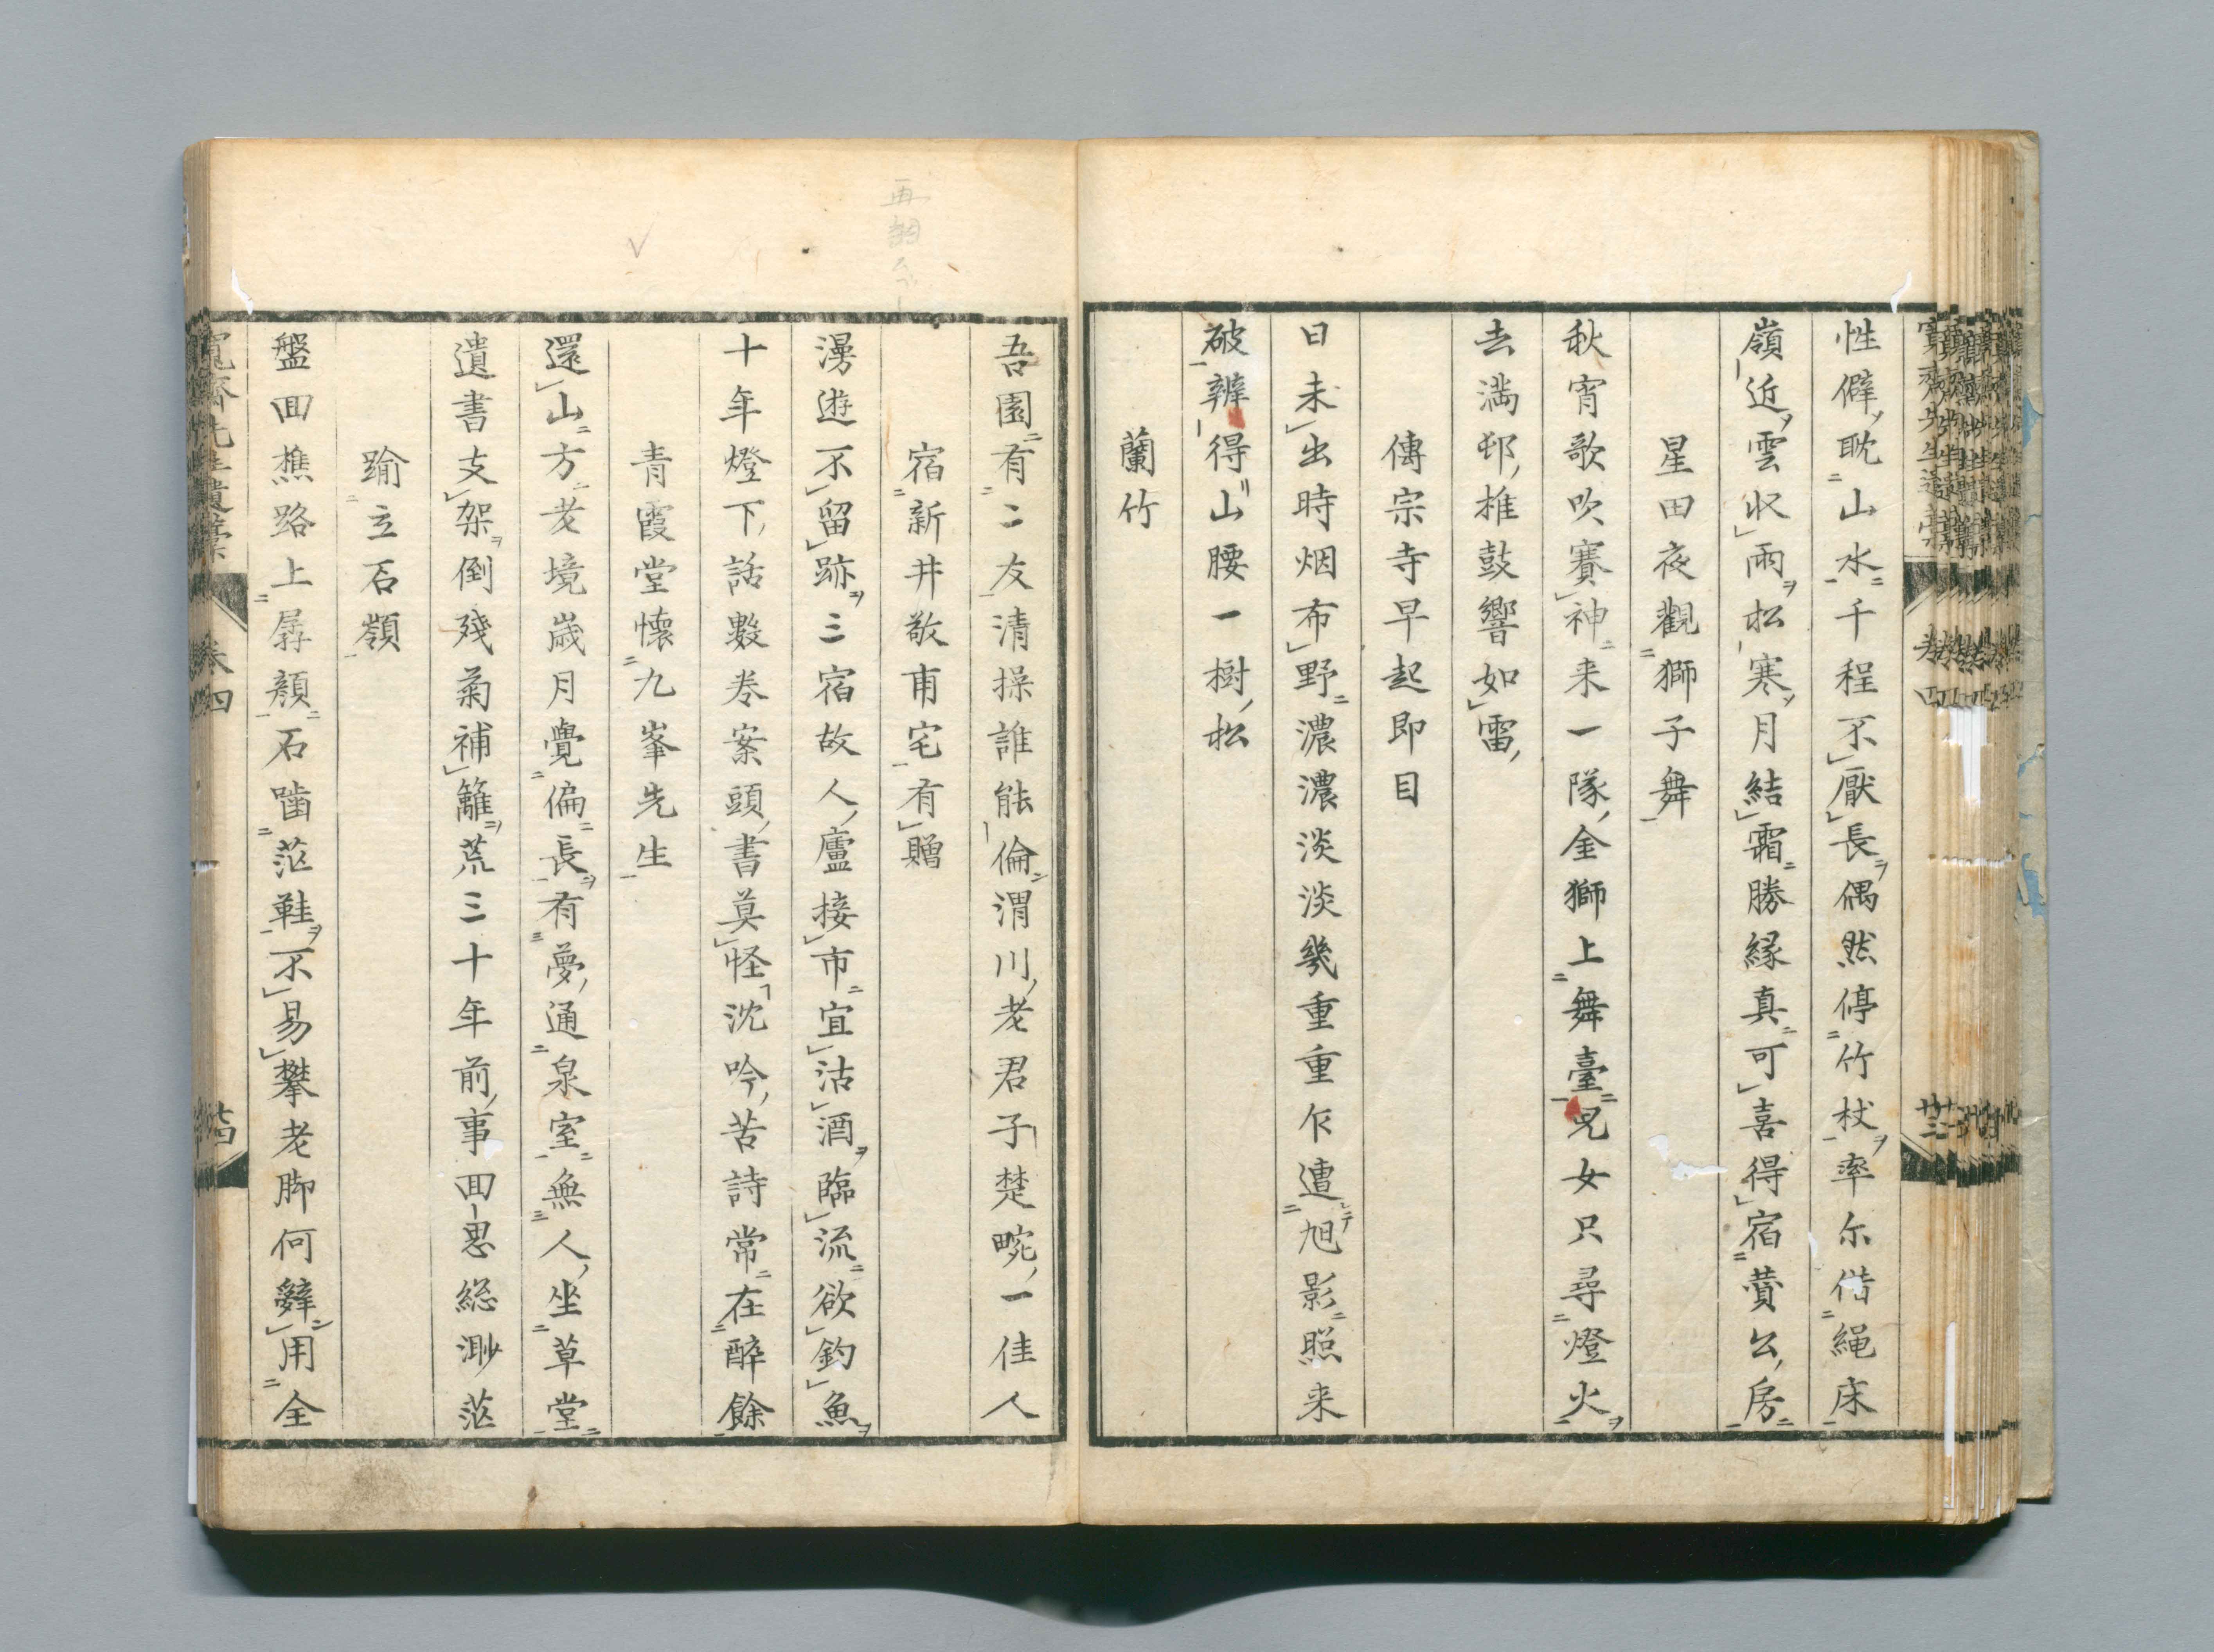 性僻耽山水千程不厭長偶然停竹杖率尓偕繩床
嶺近雲収雨松寒月結霜勝縁真可喜得宿賛公房
星田夜觀獅子舞
秋宵歌吹賽神来一隊金獅上舞臺兒女只尋燈火
去満邨椎鼓響如雷
傳宗寺早起即目
日未出時烟布野濃濃淡淡幾重重乍遭旭影照来
破辨得山腰一樹松
蘭竹
吾園有二友清操誰能倫渭川老君子楚畹一佳人
宿新井敬甫宅有贈
漫遊不留跡三宿故人廬接市宜沽酒臨流欲釣魚
十年燈下話數巻案頭書莫怪沈吟苦詩常在酔餘
青霞堂懐九峯先生
還山方老境歳月覺偏長有夢通泉室無人坐草堂
遺書支架倒殘菊補籬荒三十年前事回思総渺茫
踰立石嶺
盤回樵路上孱顔石齒茫鞋不易攀老脚何辭用全
寛齋先生遺稾
巻四